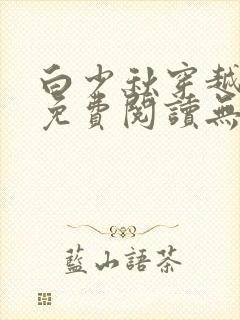 白少秋穿越
免費閱讀無
藍山語茶